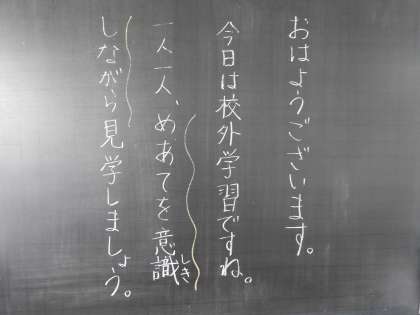 おはようございます。
今日は校外学習ですね。
一人一人、めあてを意識しき
しながら見学しましょう。